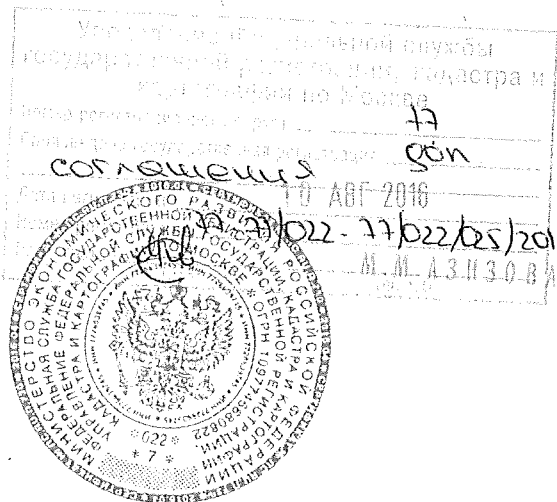 Управление Федеральной службы
государственной регистрации, кадастра и
картографии по Москве
77
доп
соглашения
10 АВГ 2016
77-77/022-77/022/025/201
М.М. АЗИЗОВА
МИНИСТЕРСТВО ЭКОНОМИЧЕСКОГО РАЗВИТИЯ РОССИЙСКОЙ ФЕДЕРАЦИИ
ФЕДЕРАЛЬНАЯ СЛУЖБА ГОСУДАРСТВЕННОЙ РЕГИСТРАЦИИ, КАДАСТРА И КАРТОГРАФИИ
УПРАВЛЕНИЕ ФЕДЕРАЛЬНОЙ СЛУЖБЫ ГОСУДАРСТВЕННОЙ РЕГИСТРАЦИИ,
КАДАСТРА И КАРТОГРАФИИ ПО МОСКВЕ * ОГРН 1097746680822
*022*
* 7 *